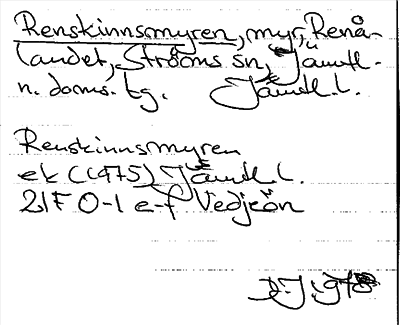 Renskinnsmyren, myr, Renå-
landet, Ströms sn, Jämtl.
n. doms. tg. Jämtl. l.
Renskinnsmyren
ek (1975) Jämtl l.
21F 0-1 e-f Vedjeön
1978